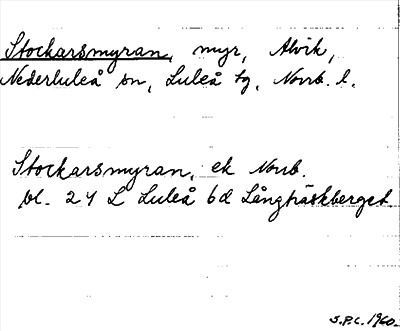 Stockarsmyran, myr, Alvik,
Nederluleå sn, Luleå tg, Norrb. l.
Stockarsmyran, ek Norrb.
bl. 24 L Luleå 6d Långträskberget
S.P.C. 1960.